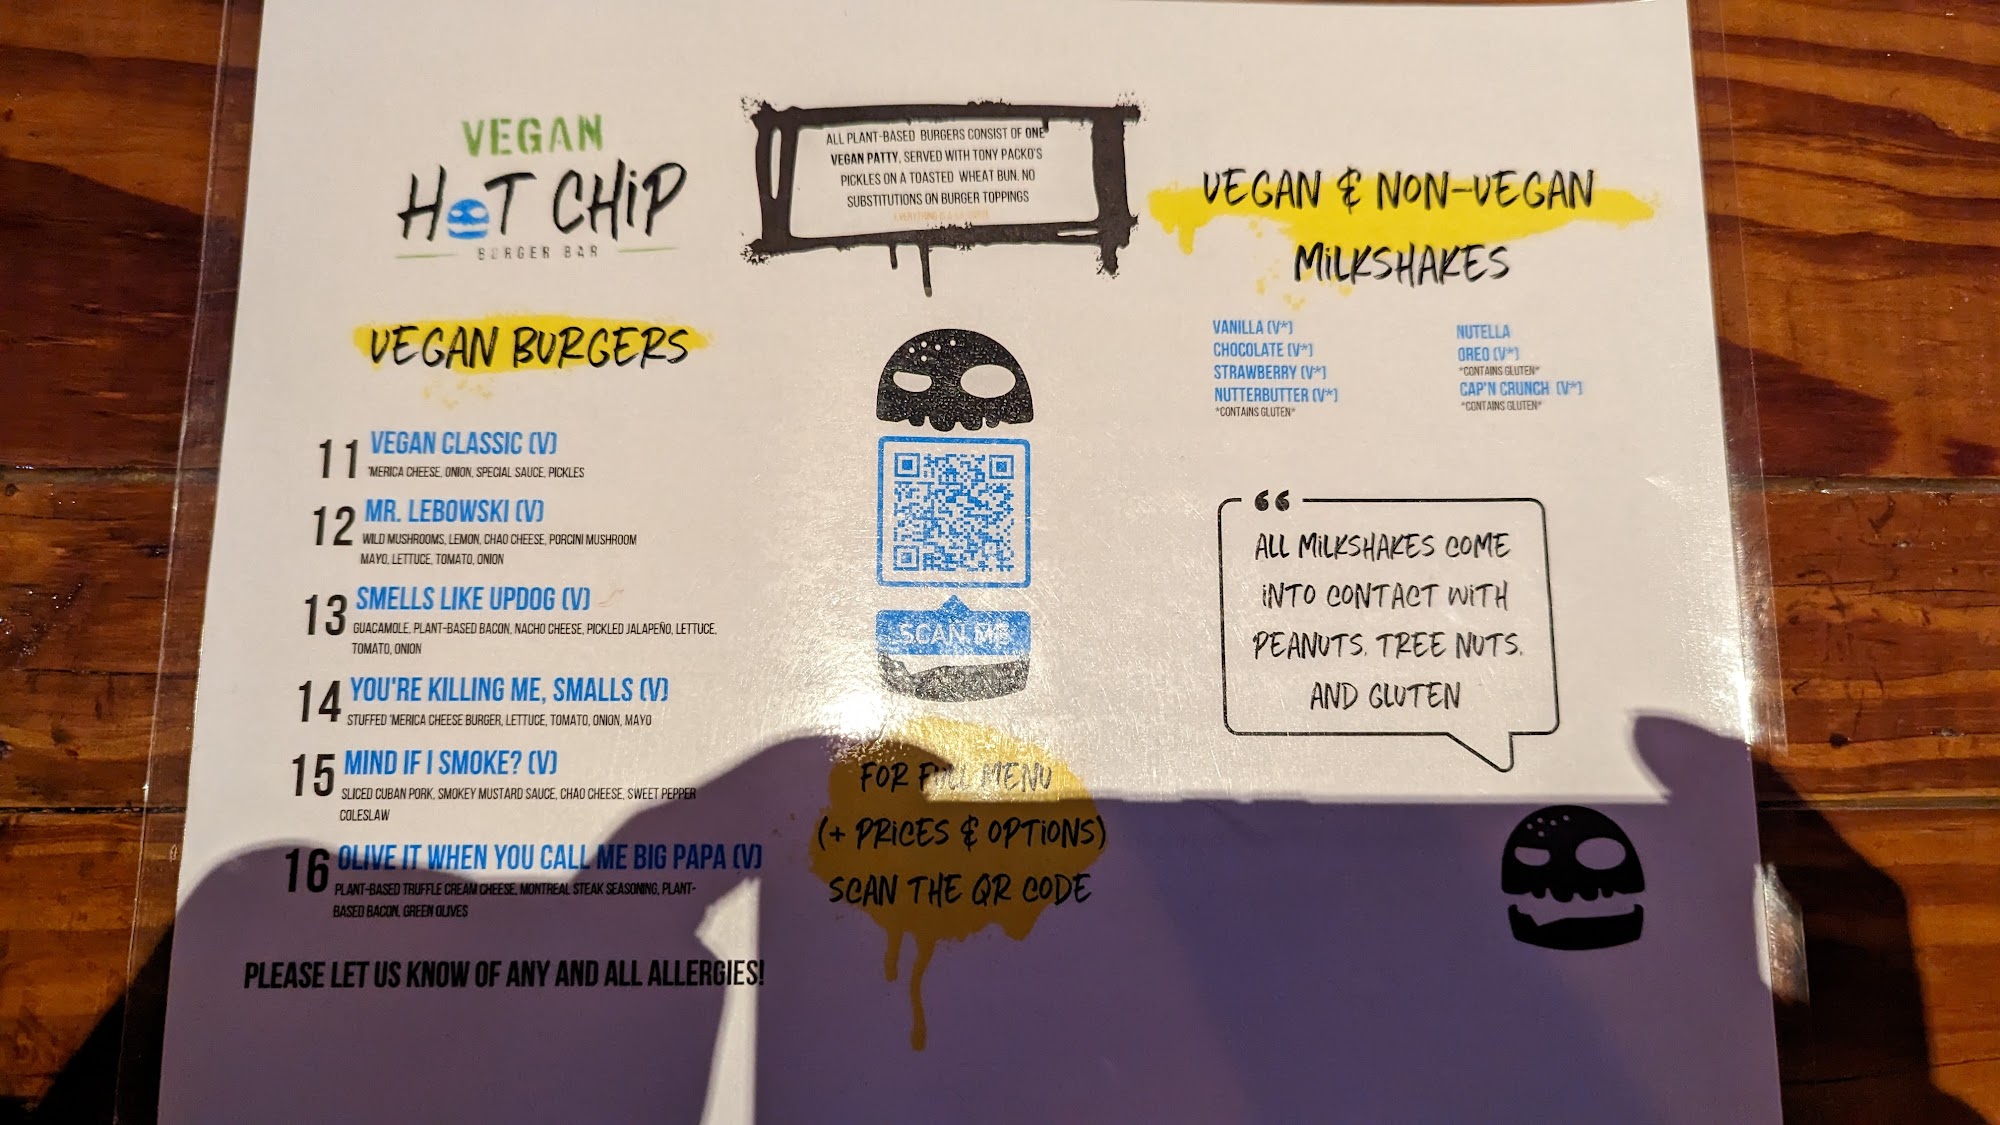 VEGAN
HOT CHiP
BURGER BAR
ALL PLANT-BASED BURGERS CONSIST OF ONE
VEGAN PATTY, SERVED WITH TONY PACKO'S
PICKLES ON A TOASTED WHEAT BUN. NO
SUBSTITUTIONS ON BURGER TOPPINGS
VEGAN BURGERS
11 VEGAN CLASSIC (V)
'MERICA CHEESE, ONION, SPECIAL SAUCE, PICKLES
12 MR. LEBOWSKI (V)
WILD MUSHROOMS, LEMON, CHAO CHEESE, PORCINI MUSHROOM
MAYO, LETTUCE, TOMATO, ONION
13 SMELLS LIKE UPDOG (V)
GUACAMOLE, PLANT-BASED BACON, NACHO CHEESE, PICKLED JALAPEÑO, LETTUCE,
TOMATO, ONION
14 YOU'RE KILLING ME, SMALLS (V)
STUFFED 'MERICA CHEESE BURGER, LETTUCE, TOMATO, ONION, MAYO
15 MIND IF I SMOKE? (V)
SLICED CUBAN PORK, SMOKEY MUSTARD SAUCE, CHAO CHEESE, SWEET PEPPER
COLESLAW
16 OLIVE IT WHEN YOU CALL ME BIG PAPA (V)
PLANT-BASED TRUFFLE CREAM CHEESE, MONTREAL STEAK SEASONING, PLANT-
BASED BACON, GREEN OLIVES
PLEASE LET US KNOW OF ANY AND ALL ALLERGIES!
SCAN ME
FOR FULL MENU
(+ PRiCES & OPTiONS)
SCAN THE QR CODE
VEGAN & NON-VEGAN
MiLKSHAKES
VANILLA (V*)
CHOCOLATE (V*)
STRAWBERRY (V*)
NUTTERBUTTER (V*)
*CONTAINS GLUTEN*
NUTELLA
OREO (V*)
*CONTAINS GLUTEN*
CAP'N CRUNCH (V*)
*CONTAINS GLUTEN*
“
ALL MiLKSHAKES COME
iNTO CONTACT WiTH
PEANUTS, TREE NUTS,
AND GLUTEN